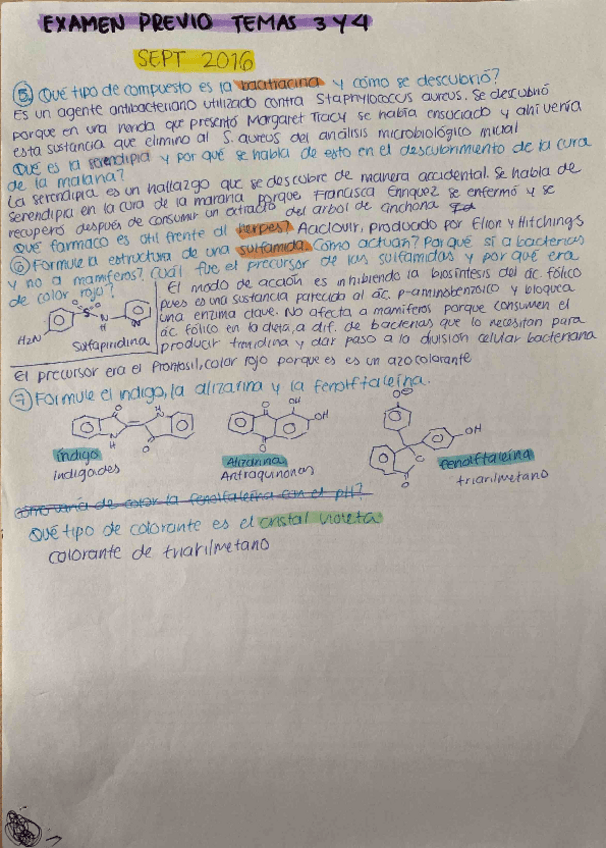 EXAMEN PREVIO TEMAS 3 Y 4
SEPT 2016
⑤ Qué tipo de compuesto es la bacitracina y cómo se descubrió?
Es un agente antibacteriano utilizado contra Staphylococcus aureus. Se descubrió
porque en una herida que presentó Margaret Tracy se había ensuciado y ahí venía
esta sustancia que elimino al S. aureus del análisis microbiológico inicial
Qué es la serendipia y por qué se habla de esto en el descubrimiento de la cura
de la malaria?
La serendipia es un hallazgo que se descubre de manera accidental. Se habla de
serendipia en la cura de la malaria porque Francisca Enriquez se enfermó y se
recuperó después de consumir un extracto del arbol de cinchona
Qué farmaco es útil frente al herpes? Aaclovir, producido por Elion y Hitchings
⑥ Formule la estructura de una sulfamida. Cómo actúan? Por qué sí a bacterias
y no a mamíferos? Cuál fue el precursor de las sulfamidas y por qué era
de color rojo?
El modo de acción es inhibiendo la biosíntesis del ác. fólico
pues es una sustancia parecida al ác. p-aminobenzoico y bloquea
una enzima clave. No afecta a mamíferos porque consumen el
ác fólico en la dieta, a dif. de bacterias que lo necesitan para
producir timidina y dar paso a la división celular bacteriana
O O
S
N
H
N
H₂N
Sulfapiridina
El precursor era el Prontosil, color rojo porque es es un azocolorante
⑦ Formule el indigo, la alizarina y la fenolftaleína.
O
H
N
N
H
O
índigo
Indigoides
O
OH
OH
O
Alizarina
Antraquinonas
OH
O
O
fenolftaleína
triarilmetano
Cómo varía de color la fenolftaleína con el pH?
Qué tipo de colorante es el cristal violeta
colorante de triarilmetano